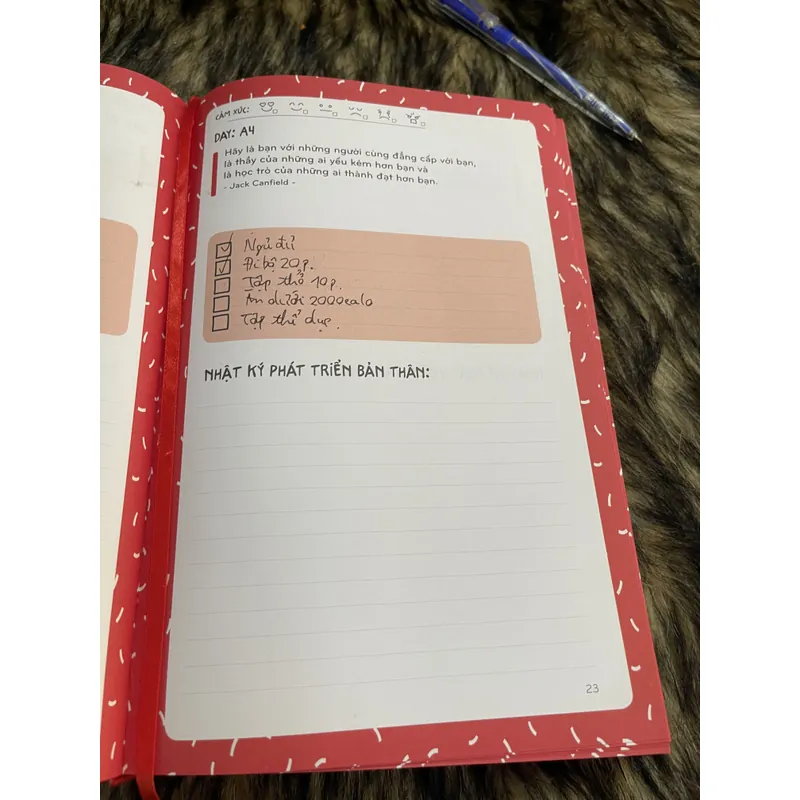 CẢM XÚC:
DAY: A4
Hãy là bạn với những người cùng đẳng cấp với bạn,
là thầy của những ai yếu kém hơn bạn và
là học trò của những ai thành đạt hơn bạn.
- Jack Canfield -
Ngủ đủ
Đi bộ 20p.
Tập thở 10p.
Ăn dưới 2000calo
Tập thể dục.
NHẬT KÝ PHÁT TRIỂN BẢN THÂN:
23